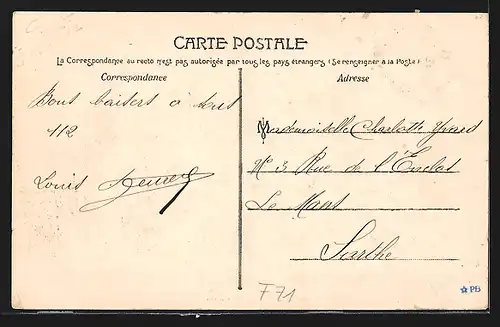 CARTE POSTALE
La Correspondance au recto n'est pas autorisée par tous les pays étrangers (Se renseigner à la Poste)
Correspondance
Adresse
Bons baisers à tous
112
Louis
Mademoiselle Charlotte Yvard
N° 3 Rue de l'Enclos
Le Mans
Sarthe
F71
PB